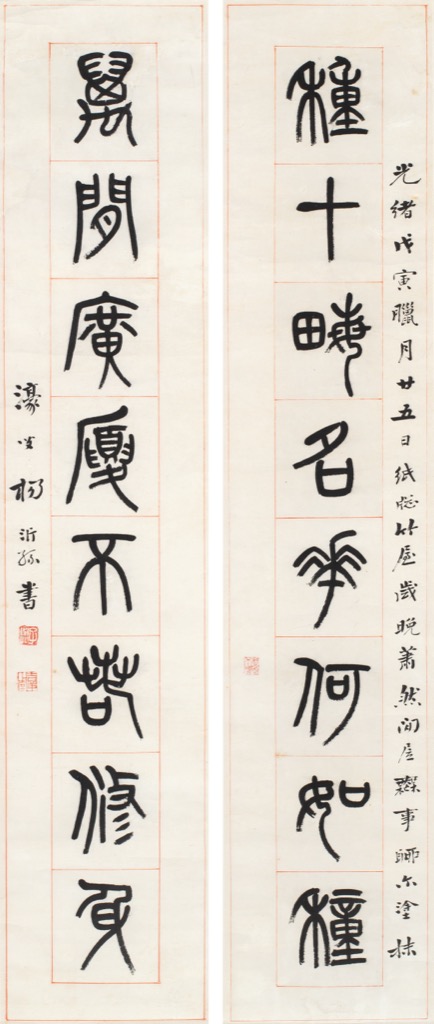 光緒戊寅臘月廿五日紙牕竹屋歲晚蕭然閒居無事聊尔塗抹
種十畮名華何如種
萬間廣廈不若修身
濠叟楊沂孫書